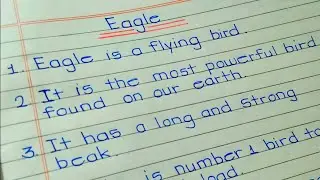 Eagle
1. Eagle is a flying bird.
2. It is the most powerful bird
found on our earth.
3. It has a long and strong
beak.
is number 1 bird to
load.